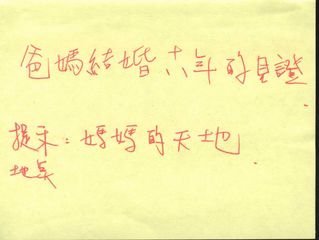 爸媽結婚十六年的見證.
提示：媽媽的天地.
地點